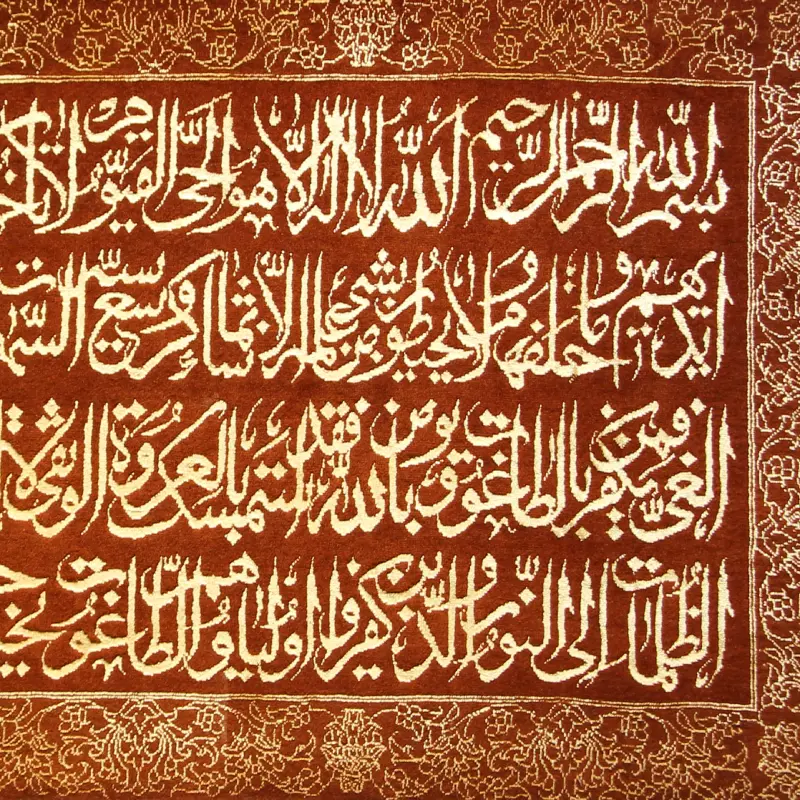 بسم الله الرحمن الرحيم الله لا اله الا هو الحی القیوم لا تأخذ
ایدیهم و ما خلفهم و لا یحیطون بشیء من علمه الا بما شاء وسع کرسیه السم
الغی فمن یکفر بالطاغوت و یؤمن بالله فقد استمسک بالعروة الوثقی لا
الظلمات الی النور و الذین کفروا اولیاؤهم الطاغوت یخرج